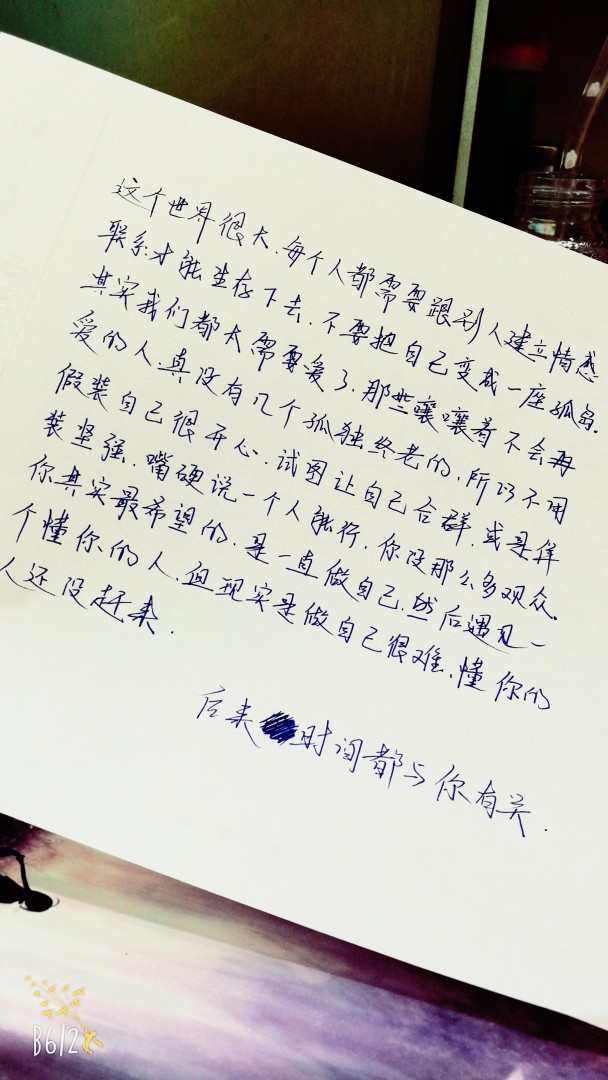 这个世界很大.每个人都需要跟别人建立情感
联系才能生存下去.不要把自己变成一座孤岛.
其实我们都太需要爱了.那些嚷嚷着不会再
爱的人.真没有几个孤独终老的.所以不用
假装自己很开心.试图让自己合群.或是佯
装坚强.嘴硬说一个人能行.你没那么多观众.
你其实最希望的.是一直做自己.然后遇见一
个懂你的人.但现实是做自己很难.懂你的
人还没赶来.
后来时间都与你有关.
B612